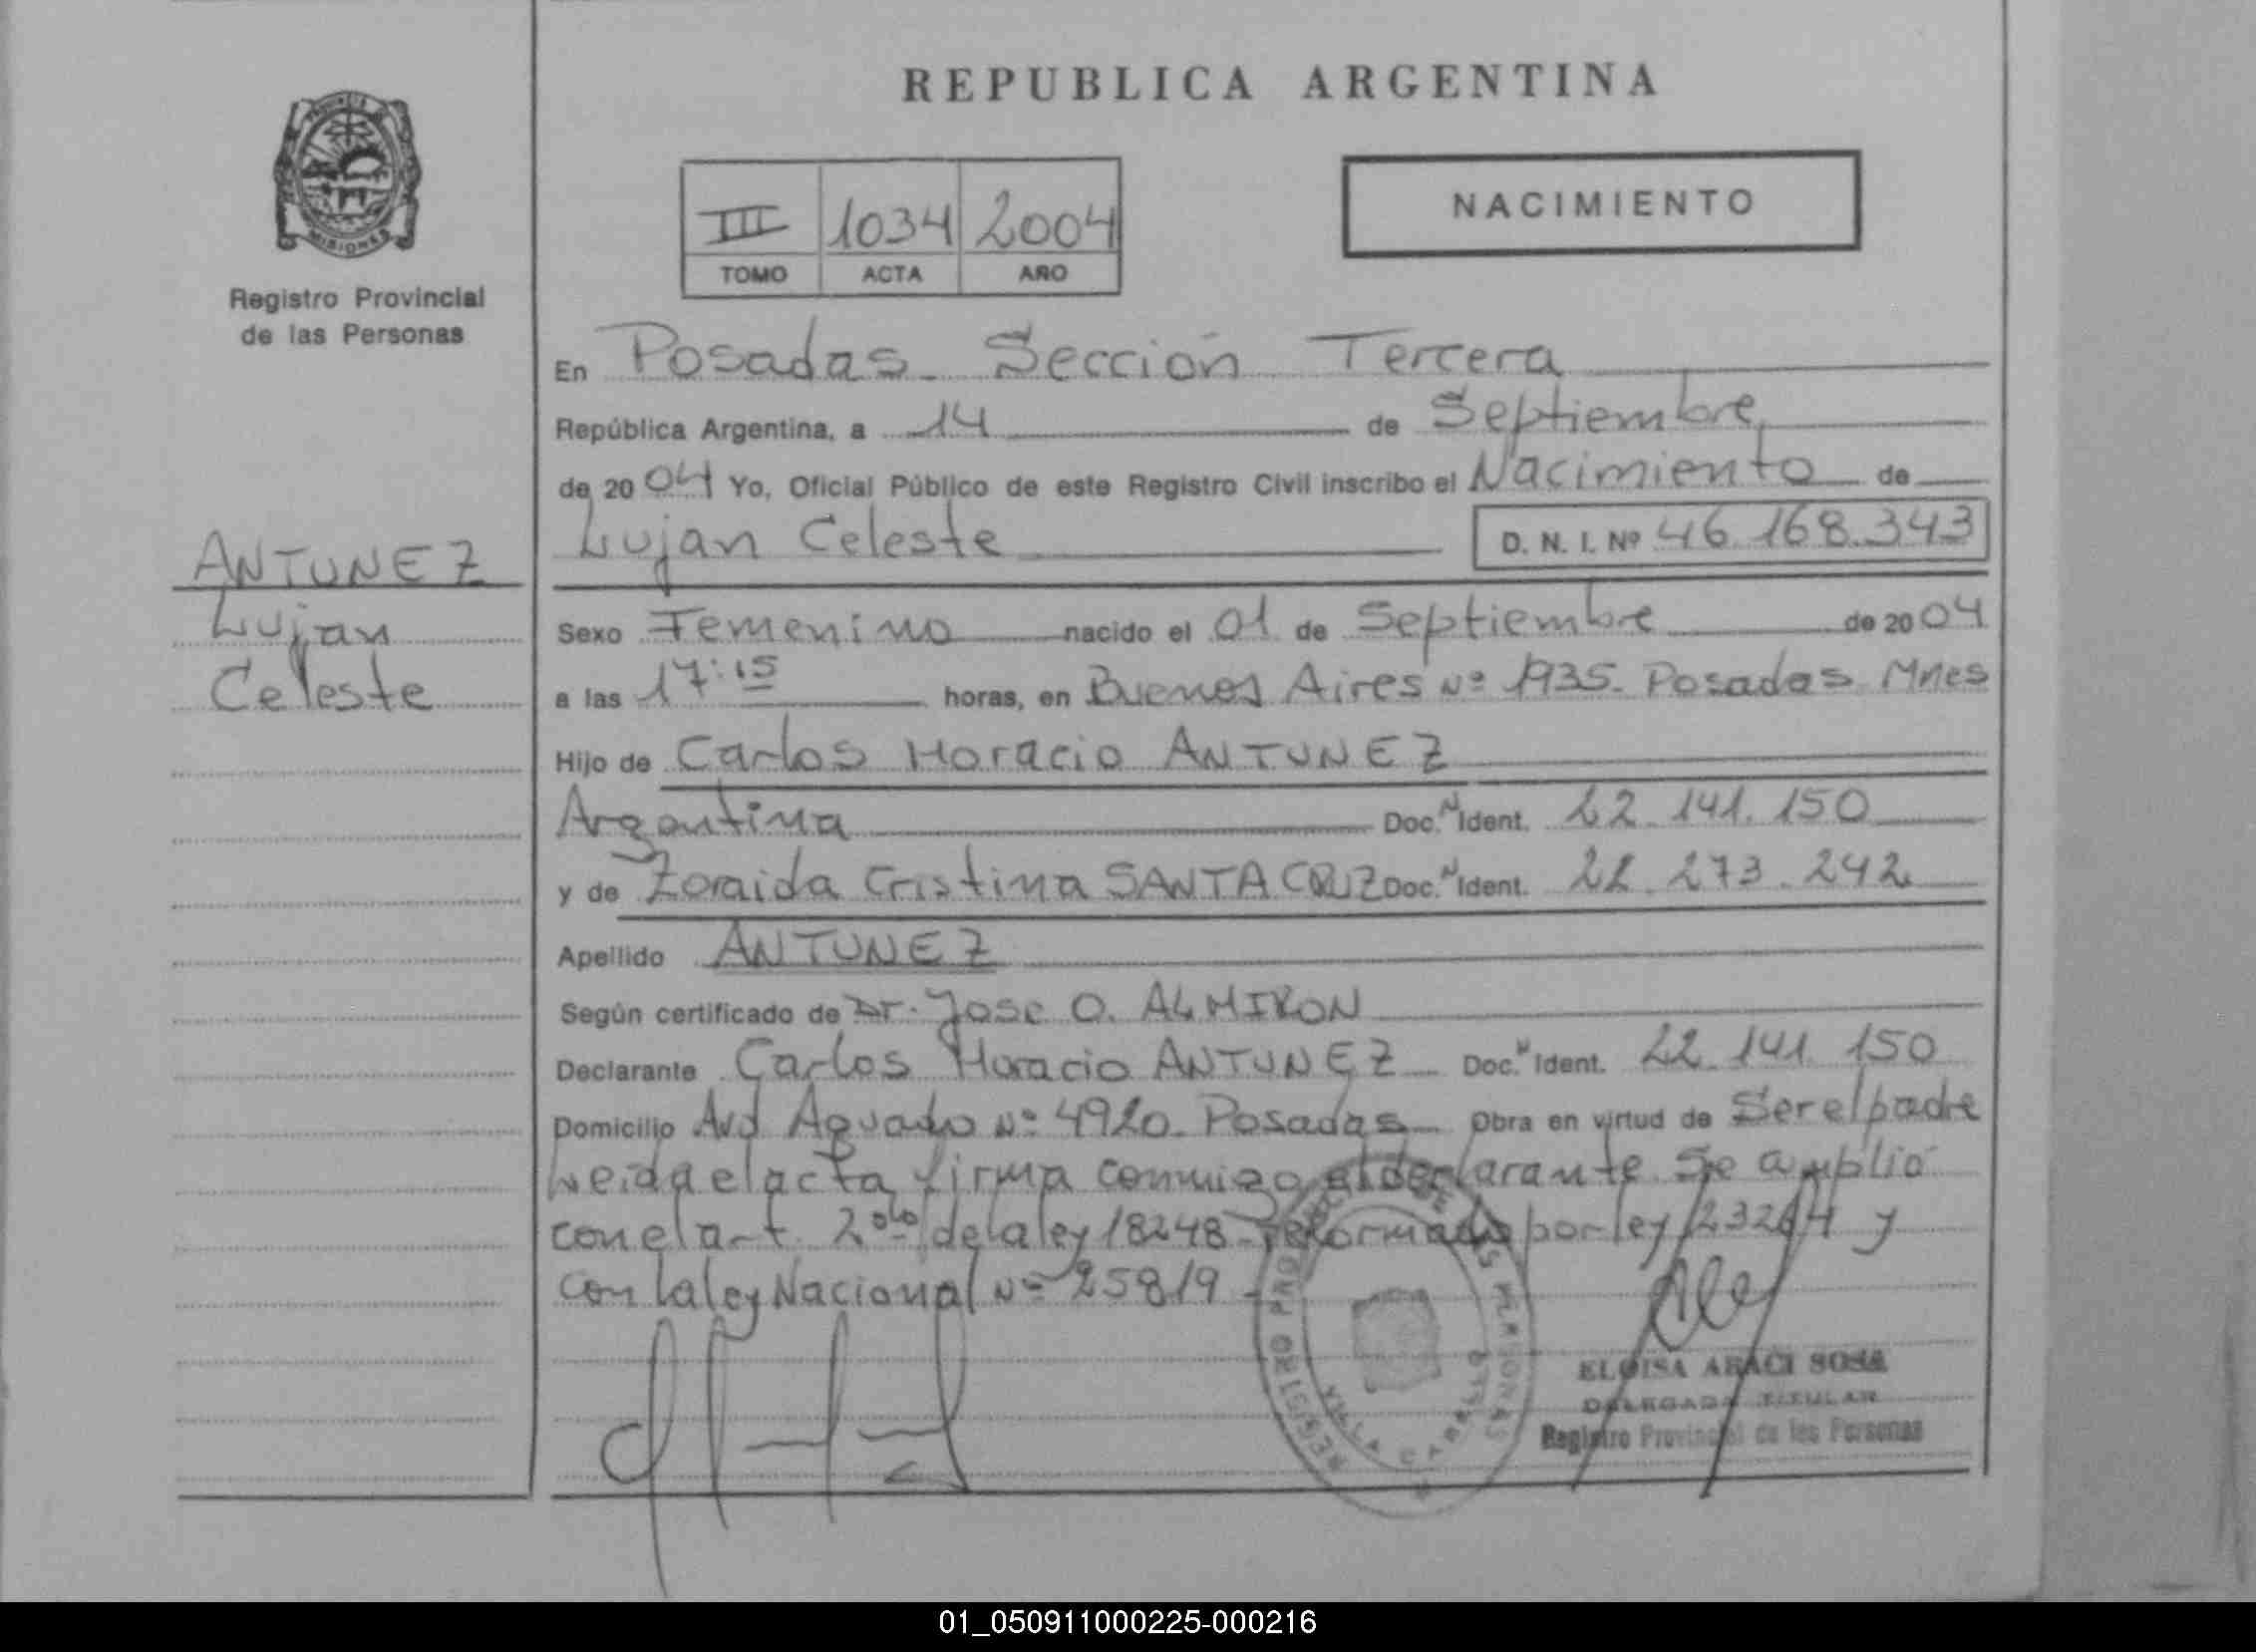 REPUBLICA ARGENTINA
NACIMIENTO
III 1034 2004
TOMO ACTA AÑO
MISIONES
Registro Provincial
de las Personas
En Posadas - Sección Tercera
República Argentina, a 14 de Septiembre
de 2004 Yo, Oficial Público de este Registro Civil inscribo el Nacimiento de
Lujan Celeste D. N. I. Nº 46.168.343
ANTUNEZ
Lujan
Celeste
Sexo Femenino nacido el 01 de Septiembre de 2004
a las 17:15 horas, en Buenos Aires Nº 1935. Posadas Mnes
Hijo de Carlos Horacio ANTUNEZ
Argentina Doc. N Ident. 22.141.150
y de Zoraida Cristina SANTA CRUZ Doc. N Ident. 273.242
Apellido ANTUNEZ
Según certificado de Dr. Jose O. ALMIRON
Declarante Carlos Horacio ANTUNEZ Doc. N Ident. 22.141.150
Domicilio Avd Aguado Nº 4920. Posadas Obra en virtud de Ser el padre
Leida el acta firma conmigo el declarante Se amplió
con el art. 2 de la ley 18248 reformado por ley y
con la ley Nacional Nº 25819
REGISTRO PROVINCIAL DE LAS PERSONAS
VILLA CABELLO
ELOISA ARACI SOSA
DELEGADA TITULAR
Registro Provincial de las Personas
01_050911000225-000216